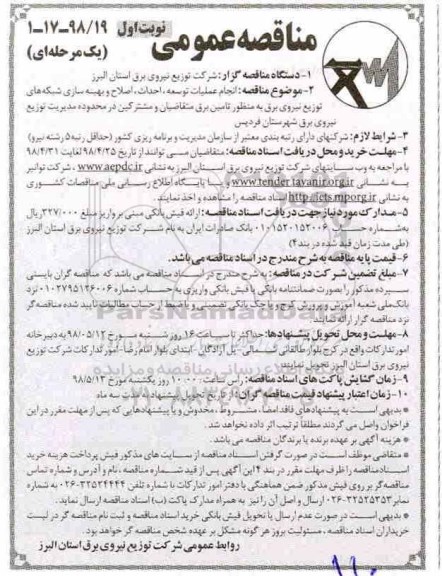 مناقصه عمومی
نوبت اول
۱-۱۷-۹۸/۱۹
(یک مرحله‌ای)
۱- دستگاه مناقصه گزار: شرکت توزیع نیروی برق استان البرز
۲- موضوع مناقصه: انجام عملیات توسعه، احداث، اصلاح و بهینه سازی شبکه‌های
توزیع نیروی برق به منظور تامین برق متقاضیان و مشترکین در محدوده مدیریت توزیع
نیروی برق شهرستان فردیس
۳- شرایط لازم: شرکتهای دارای رتبه بندی معتبر از سازمان مدیریت و برنامه ریزی کشور (حداقل رتبه ۵ رشته نیرو)
۴- مهلت خرید و محل دریافت اسناد مناقصه: متقاضیان می توانند از تاریخ ۹۸/۴/۲۵ لغایت ۹۸/۴/۳۱
با مراجعه به وب سایتهای شرکت توزیع نیروی برق استان البرز به نشانی www.aepdc.ir، شرکت توانیر
به نشانی www.tender.tavanir.org.ir و یا پایگاه اطلاع رسانی ملی مناقصات کشوری
به نشانی http://iets.mporg.ir اسناد مناقصه را مشاهده و اخذ نمایند.
۵- مدارک مورد نیاز جهت دریافت اسناد مناقصه: ارائه فیش بانکی مبنی بر واریز مبلغ ۳۲۷/۰۰۰ ریال
به شماره حساب ۰۱۰۱۵۲۰۱۵۲۰۰۶ بانک صادرات ایران به نام شرکت توزیع نیروی برق استان البرز
(طی مدت زمان قید شده در بند ۴)
۶- قیمت پایه مناقصه به شرح مندرج در اسناد مناقصه می باشد.
۷- مبلغ تضمین شرکت در مناقصه: به شرح مندرج در اسناد مناقصه می باشد که مناقصه گران بایستی
سپرده مذکور را بصورت ضمانتنامه بانکی یا فیش بانکی واریزی به حساب شماره ۰۱۰۲۷۹۵۱۲۶۰۰۶ نزد
بانک ملی شعبه آموزش و پرورش کرج و یا چک بانکی تضمینی و یا ضبط از حساب مطالبات تایید شده مناقصه گر
نزد مناقصه گزار ارائه نمایند.
۸- مهلت و محل تحویل پیشنهادها: حداکثر تا ساعت ۱۶ روز شنبه مورخ ۹۸/۰۵/۱۲ به دبیرخانه
امور تدارکات واقع در کرج بلوار طالقانی شمالی - پل آزادگان - ابتدای بلوار امام رضا - امور تدارکات شرکت توزیع
نیروی برق استان البرز تحویل نمایند.
۹- زمان گشایش پاکت های اسناد مناقصه: راس ساعت ۱۰:۰۰ روز یکشنبه مورخ ۹۸/۵/۱۳
۱۰- زمان اعتبار پیشنهاد قیمت مناقصه گران: از تاریخ تحویل پیشنهاد، بمدت سه ماه
* بدیهی است به پیشنهادهای فاقد امضا، مشروط، مخدوش و یا پیشنهادهایی که پس از مهلت مقرر در این
فراخوان واصل می گردند مطلقا ترتیب اثر داده نخواهد شد.
* هزینه آگهی بر عهده برنده یا برندگان مناقصه می باشد.
* متقاضی موظف است در صورت گرفتن اسناد مناقصه از سایت های مذکور فیش پرداخت هزینه خرید
اسناد مناقصه را ظرف مهلت مقرر در بند ۴ این آگهی پس از قید شماره مناقصه، نام و آدرس و شماره تماس
مناقصه گر بر روی فیش مذکور ضمن هماهنگی با دفتر امور تدارکات با شماره تلفن ۳۲۵۲۴۴۴۴-۰۲۶ به شماره
نمابر ۳۲۵۲۵۳۵۳-۰۲۶ ارسال و اصل آن را نیز به همراه مدارک پاکت (ب) اسناد مناقصه ارسال نماید.
* بدیهی است در صورت عدم ارسال یا تحویل فیش بانکی خرید اسناد مناقصه و ثبت نام مناقصه گر در لیست
خریداران اسناد مناقصه، مسئولیت بروز هر گونه مشکل بر عهده شخص مناقصه گر خواهد بود.
روابط عمومی شرکت توزیع نیروی برق استان البرز